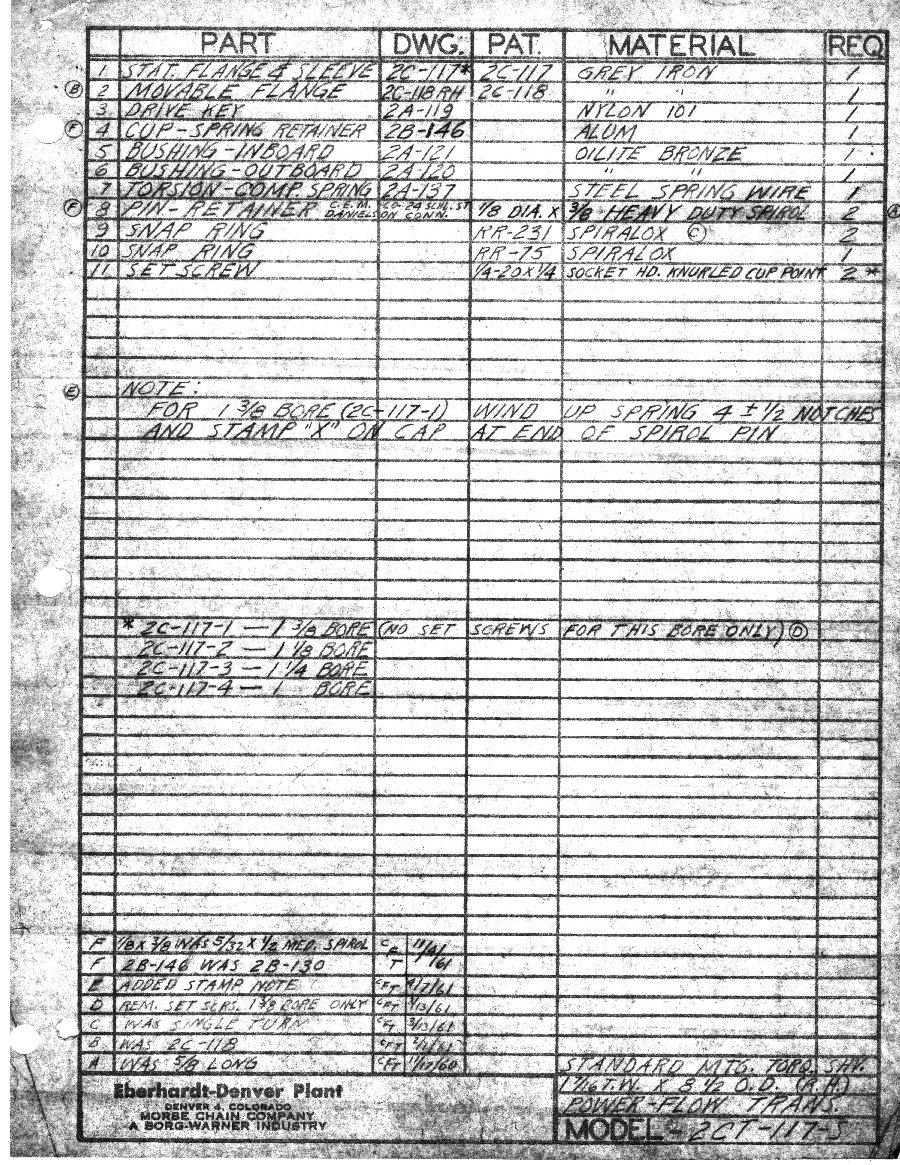 PART DWG. PAT. MATERIAL REQ
1 STAT. FLANGE & SLEEVE 2C-117* 2C-117 GREY IRON 1
B 2 MOVABLE FLANGE 2C-118RH 2C-118 " " 1
3 DRIVE KEY 2A-119 NYLON 101 1
F 4 CUP-SPRING RETAINER 2B-146 ALUM 1
5 BUSHING-INBOARD 2A-121 OILITE BRONZE 1
6 BUSHING-OUTBOARD 2A-120 " " 1
7 TORSION-COMP. SPRING 2A-137 STEEL SPRING WIRE 1
F 8 PIN-RETAINER C.E.M. CO. 24 SCHL. ST. DANIELSON CONN. 1/8 DIA. X 3/8 HEAVY DUTY SPIROL 2 A
9 SNAP RING RR-231 SPIRALOX C 2
10 SNAP RING RR-75 SPIRALOX 1
11 SET SCREW 1/4-20X1/4 SOCKET HD. KNURLED CUP POINT 2 *
E NOTE:
FOR 1 3/8 BORE (2C-117-1) WIND UP SPRING 4 ± 1/2 NOTCHES
AND STAMP "X" ON CAP AT END OF SPIROL PIN
* 2C-117-1 — 1 3/8 BORE (NO SET SCREWS FOR THIS BORE ONLY) D
2C-117-2 — 1 1/8 BORE
2C-117-3 — 1 1/4 BORE
2C-117-4 — 1 BORE
F 1/8 X 3/8 WAS 5/32 X 1/2 MED. SPIROL CFT
F 2B-146 WAS 2B-130
E ADDED STAMP NOTE CFT
D REM. SET SCRS. 1 3/8 BORE ONLY CFT
C WAS SINGLE TURN CFT 3/13/61
B WAS 2C-118 CFT
A WAS 5/8 LONG CFT 11/17/60
STANDARD MTG. TORQ. SHV.
1 7/16 T.W. X 8 1/2 O.D. (R.H.)
POWER-FLOW TRANS.
MODEL - 2CT-117-S
Eberhardt-Denver Plant
DENVER 4, COLORADO
MORSE CHAIN COMPANY
A BORG-WARNER INDUSTRY